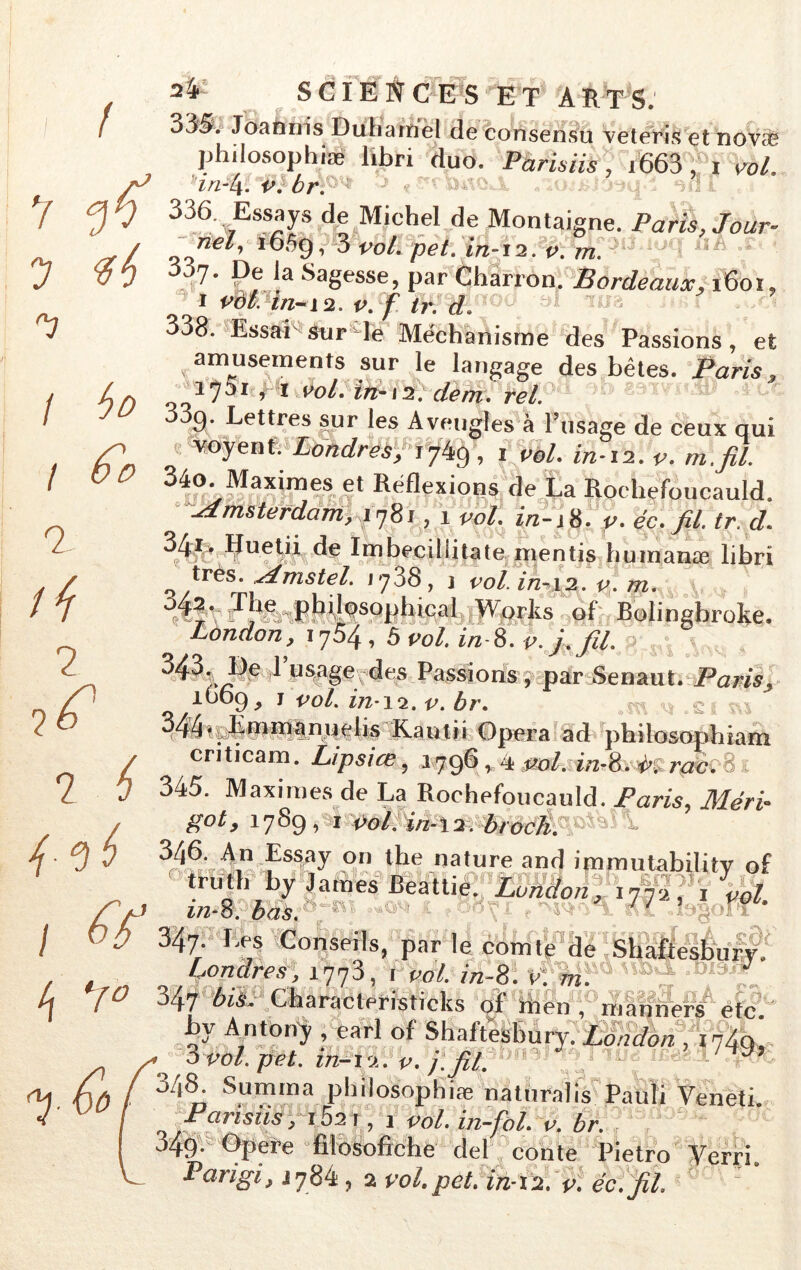 24 SCIENCES ET ARTS.
335. Joannis Duhamel de consensu veteris et novæ
philosophiæ libri duo. Parisiis, 1663, 1 vol.
in-4. v. br.
7 95 336. Essays de Michel de Montaigne. Paris, Jour-
nel, 1659, 3 vol. pet. in-12. v. m.
337. De la Sagesse, par Charron. Bordeaux, 1601,
1 vol. in-12. v. f tr. d.
338. Essai sur le Méchanisme des Passions, et
amusements sur le langage des bêtes. Paris,
1751, 1 vol. in-12. dem. rel.
339. Lettres sur les Aveugles à l'usage de ceux qui
voyent. Londres, 1749, 1 vol. in-12. v. m. fil.
1 60 340. Maximes et Réflexions de La Rochefoucauld.
Amsterdam, 1781, 1 vol. in-18. v. éc. fil. tr. d.
2 341. Huetii de Imbecillitate mentis humanæ libri
tres. Amstel. 1738, 1 vol. in-12. v. m.
342. The philosophical Works of Bolingbroke.
London, 1754, 5 vol. in-8. v. j. fil.
2 343. De l'usage des Passions, par Senaut. Paris,
1669, 1 vol. in-12. v. br.
344. Emmanuelis Kantii Opera ad philosophiam
criticam. Lipsiæ, 1796, 4 vol. in-8. v. rac.
345. Maximes de La Rochefoucauld. Paris, Méri-
got, 1789, 1 vol. in-12. broch.
346. An Essay on the nature and immutability of
truth by James Beattie. London, 1772, 1 vol.
in-8. bas.
347. Les Conseils, par le comte de Shaftesbury.
Londres, 1773, 1 vol. in-8. v. m.
4 70 347 bis. Characteristicks of men, manners etc.
by Antony, earl of Shaftesbury. London, 1749,
3 vol. pet. in-12. v. j. fil.
348. Summa philosophiæ naturalis Pauli Veneti.
Parisiis, 1521, 1 vol. in-fol. v. br.
349. Opere filosofiche del conte Pietro Verri.
Parigi, 1784, 2 vol. pet. in-12. v. éc. fil.